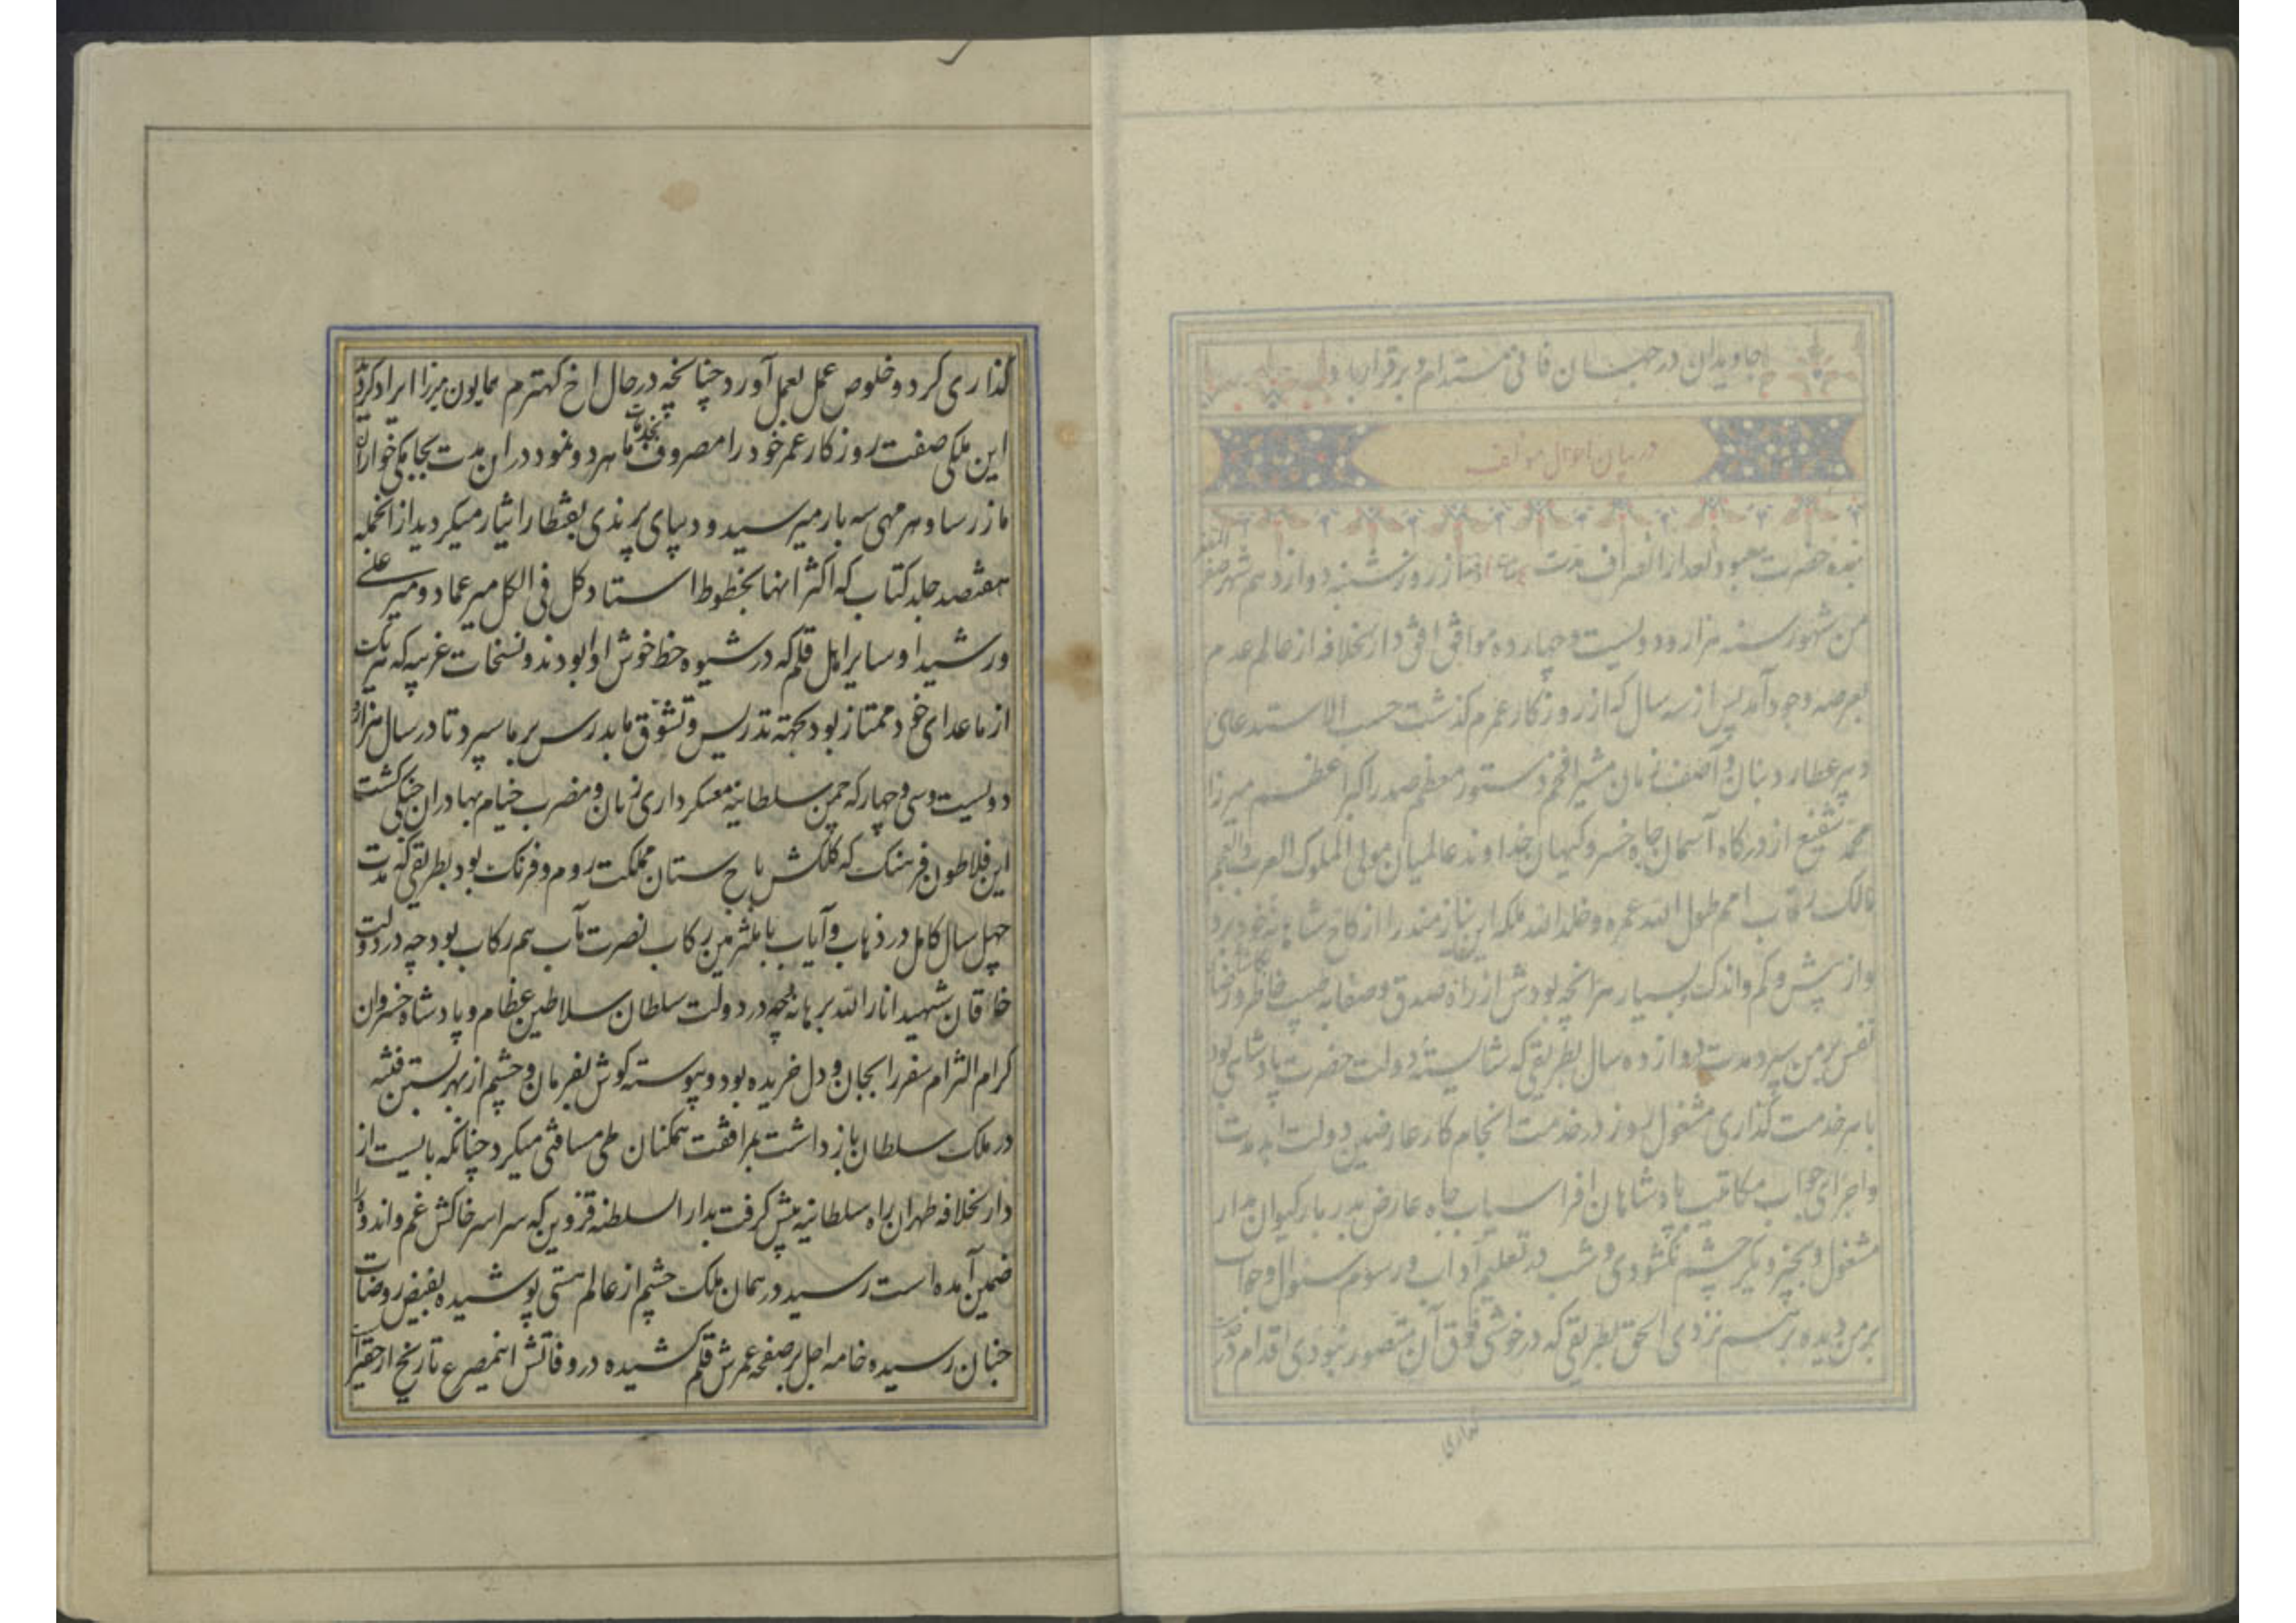 جاویدان در جهان فانی مستدام و برقرار باد
در بیان احوال مؤلف
بنده حضرت معبود بعد از انصراف مدت از روز شنبه دوازدهم شهر صفر المظفر
من شهور سنه هزار و دویست و چهارده موافق افق دار الخلافه از عالم عدم
بعرصه وجود آمد پس از سه سال که از روزکار عمرم کذشت حسب الاستدعای
دبیر عطارد بنان و آصف زمان مشیر افخم دستور معظم صدر اکبر اعظم میرزا
محمد شفیع از درکاه آسمان جاه خسرو کیهان خداوند عالمیان مولی الملوک العرب والعجم
مالک رقاب امم طول الله عمره و خلد الله ملکه این نیازمند را از کاخ شاه نزد خود برد
واز بیش و کم و اندک و بسیار هر انچه بودش از راه صدق و صفا به طیب خاطر و رضای
نفس بر من سپرد مدت دوازده سال بطریقی که شایسته دولت حضرت پادشاهی بود
بامر خدمت کذاری مشغول روز در خدمت انجام کار عارضین دولت ابد مدت
واجرای جواب مکاتیب پادشاهان افراسیاب جاه عارض بدربار کیوان مدار
مشغول و بچیز دیکر چشم نکشودی و شب در تعلیم آداب و رسوم سئوال و جواب
بر من دیده بر هم نزدی الحق بطریقی که در خوشی فوق آن متصور نبودی اقدام در خدمت
کذاری
کذاری کرد و خلوص عمل بعمل آورد چنانچه در حال اخ کهترم همایون میرزا ایراد کردید
این ملکی صفت روزکار عمر خود را مصروف بخدمات ما هر دو نمود در ان مدت بجامکی خواران
ما زر رسا و هر مهی سه بار میرسید و دیبای پرندی بقنطار ایثار میکردید از انجمله
هفتصد جلد کتاب که اکثر انها بخطوط استاد کل فی الکل میر عماد و میر علی
و رشیدا و سایر اهل قلم که در شیوه خط خوش اوا بودند و نسخات غریبه که هر یک
از ما عدای خود ممتاز بود بجهته تدریس و تشوق ما بدرس بر ما سپرد تا در سال هزار و
دویست و سی و چهار که چمن سلطانیه معسکر دارای زمان و مضرب خیام بهادران جنکی کشت
این فلاطون فرهنک که کلکش باج ستان مملکت روم و فرنک بود بطریقی که مدت
چهل سال کامل در ذهاب و آیاب با ملتزمین رکاب نصرت مآب هم رکاب بود چه در دولت
خاقان شهید انار الله برهانه چه در دولت سلطان سلاطین عظام و پادشاه خسروان
کرام التزام سفر را بجان و دل خریده بود و پیوسته کوش بفرمان و چشم از بهر بستن فتنه
در ملک سلطان باز داشت بمرافقت همکنان طی مسافتی میکرد چنانکه بایست از
دار الخلافه طهران راه سلطانیه پیش کرفت بدار السلطنه قزوین که سراسر خاکش غم و اندوه را
ضمین آمده است رسید در همان ملک چشم از عالم هستی پوشیده بفیض روضات
جنان رسیده خامه اجل بر صفحه عمرش قلم کشیده در وفاتش اینمصرع تاریخ از حقیر است